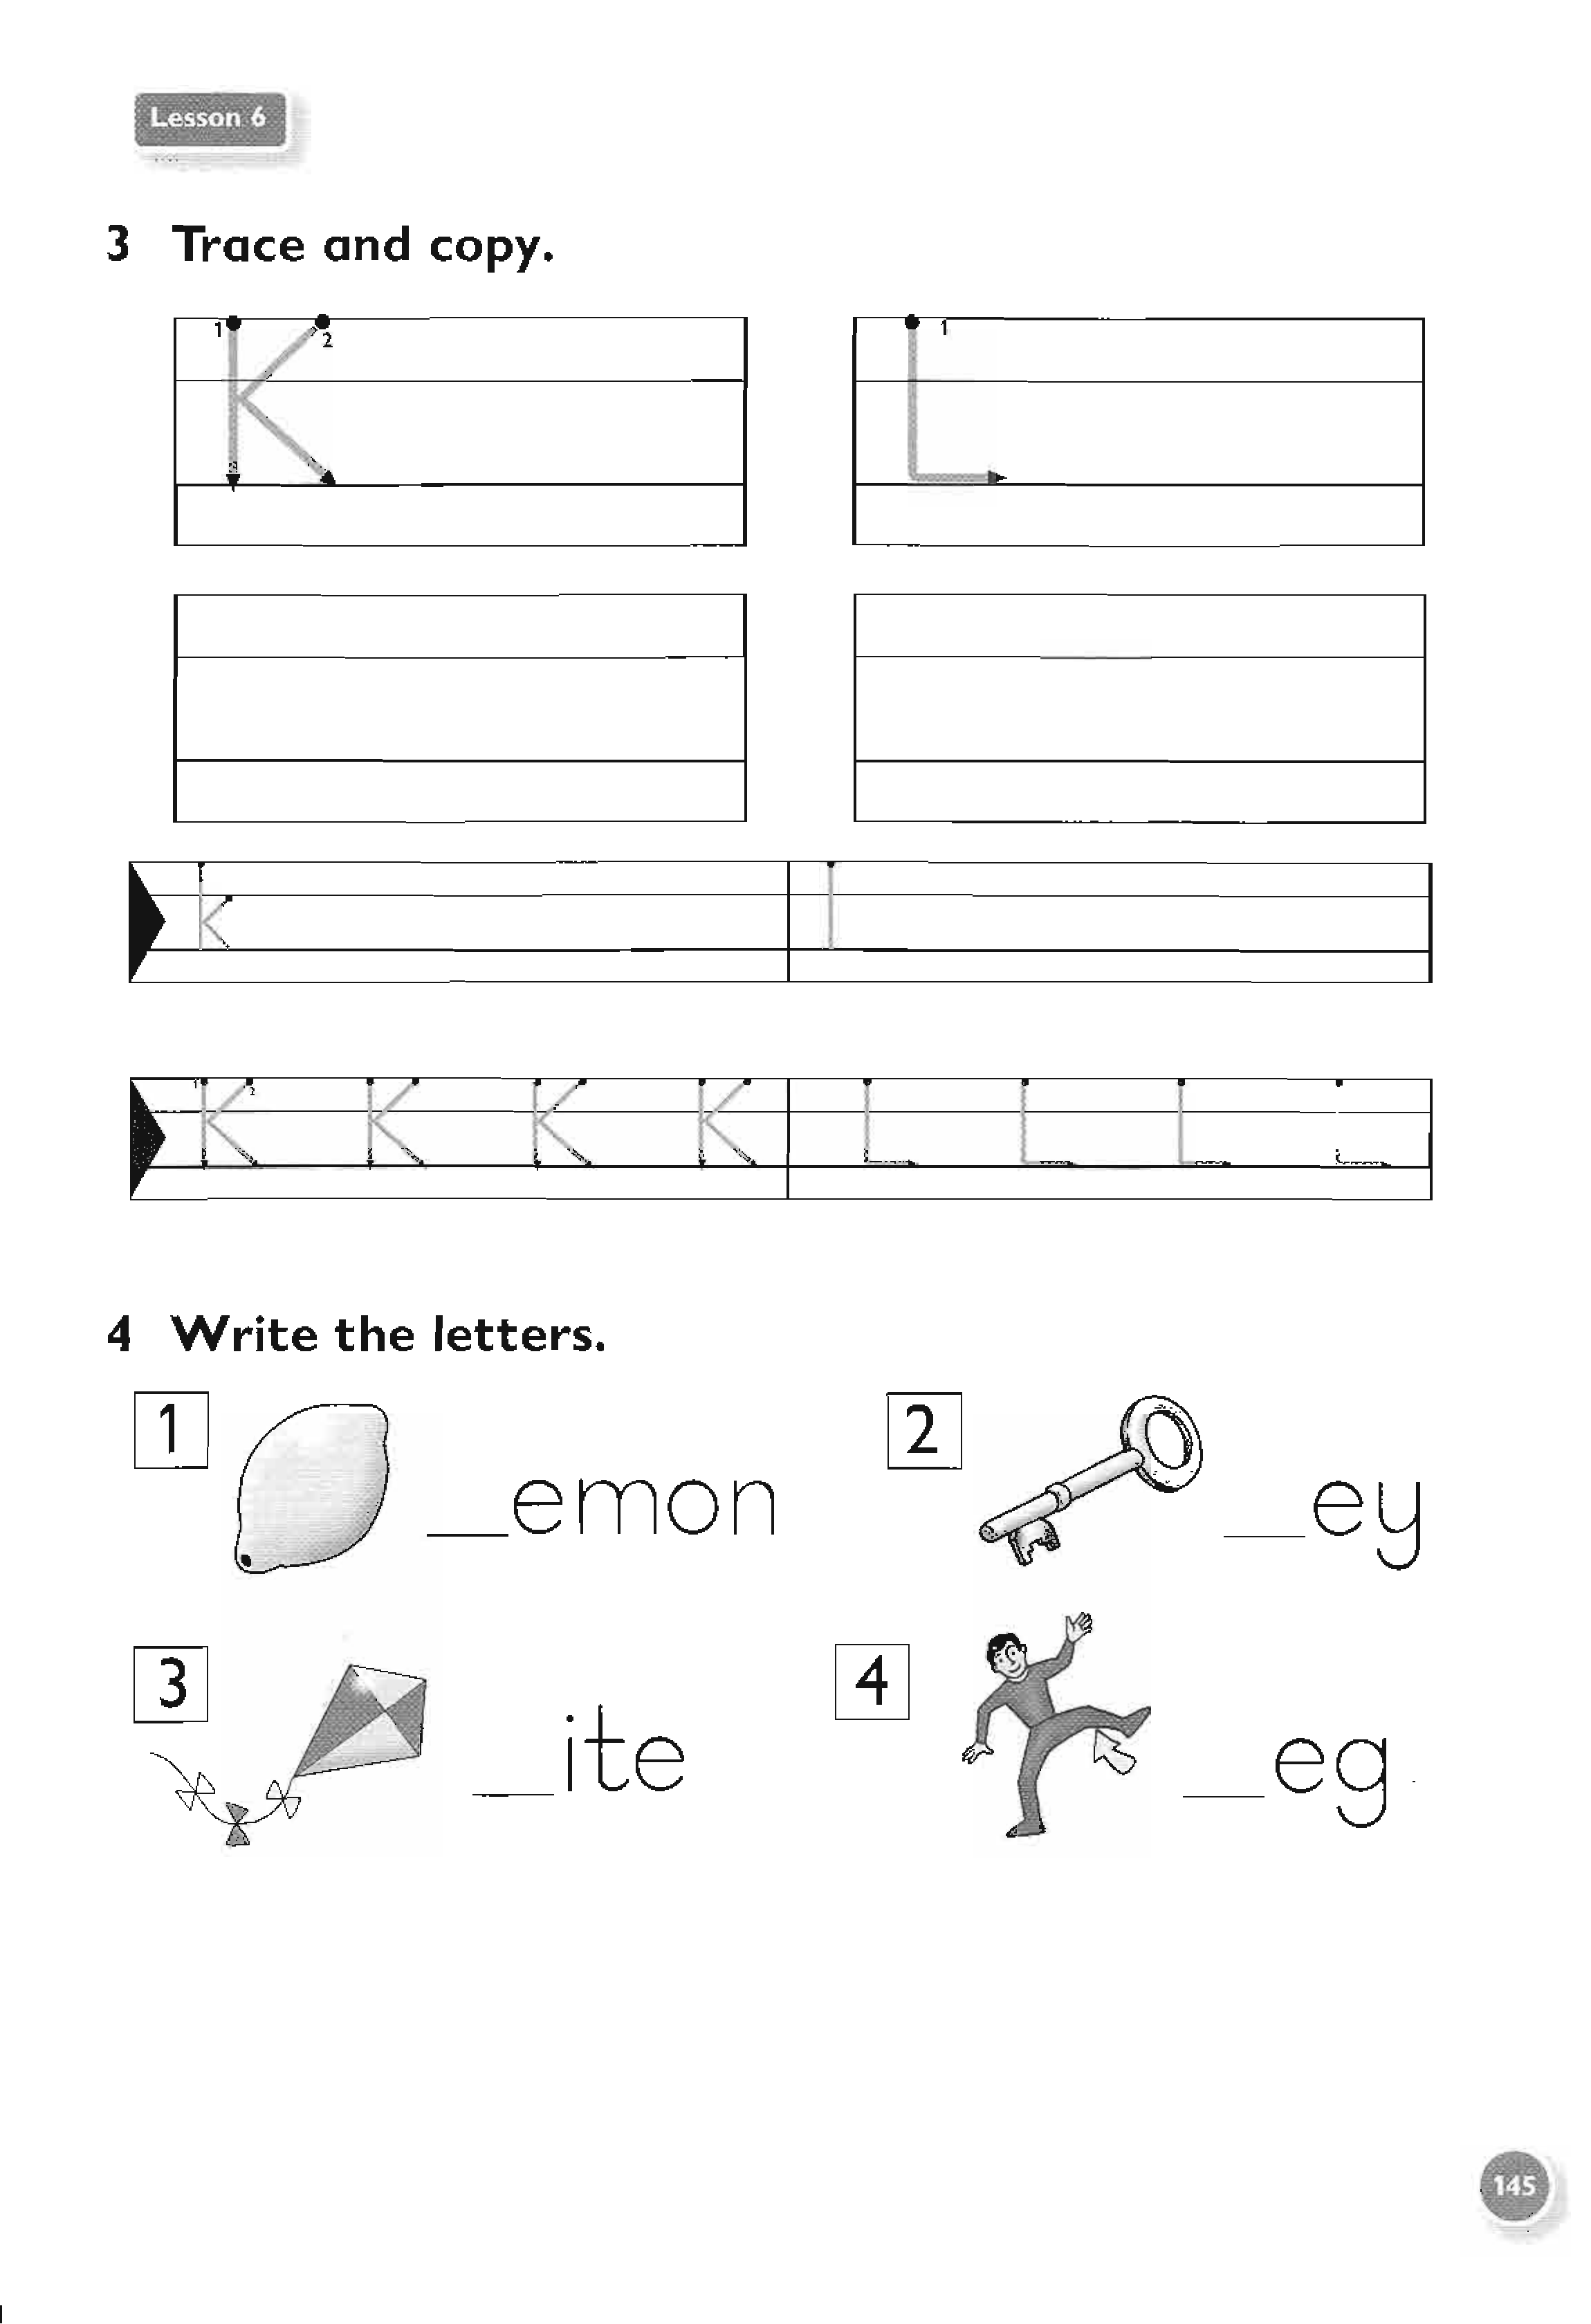 Lesson 6
3 Trace and copy.
1 K 2
L 1
k l
1 K 2 K K K L L L L
4 Write the letters.
1 __emon
2 __ey
3 __ite
4 __eg
145